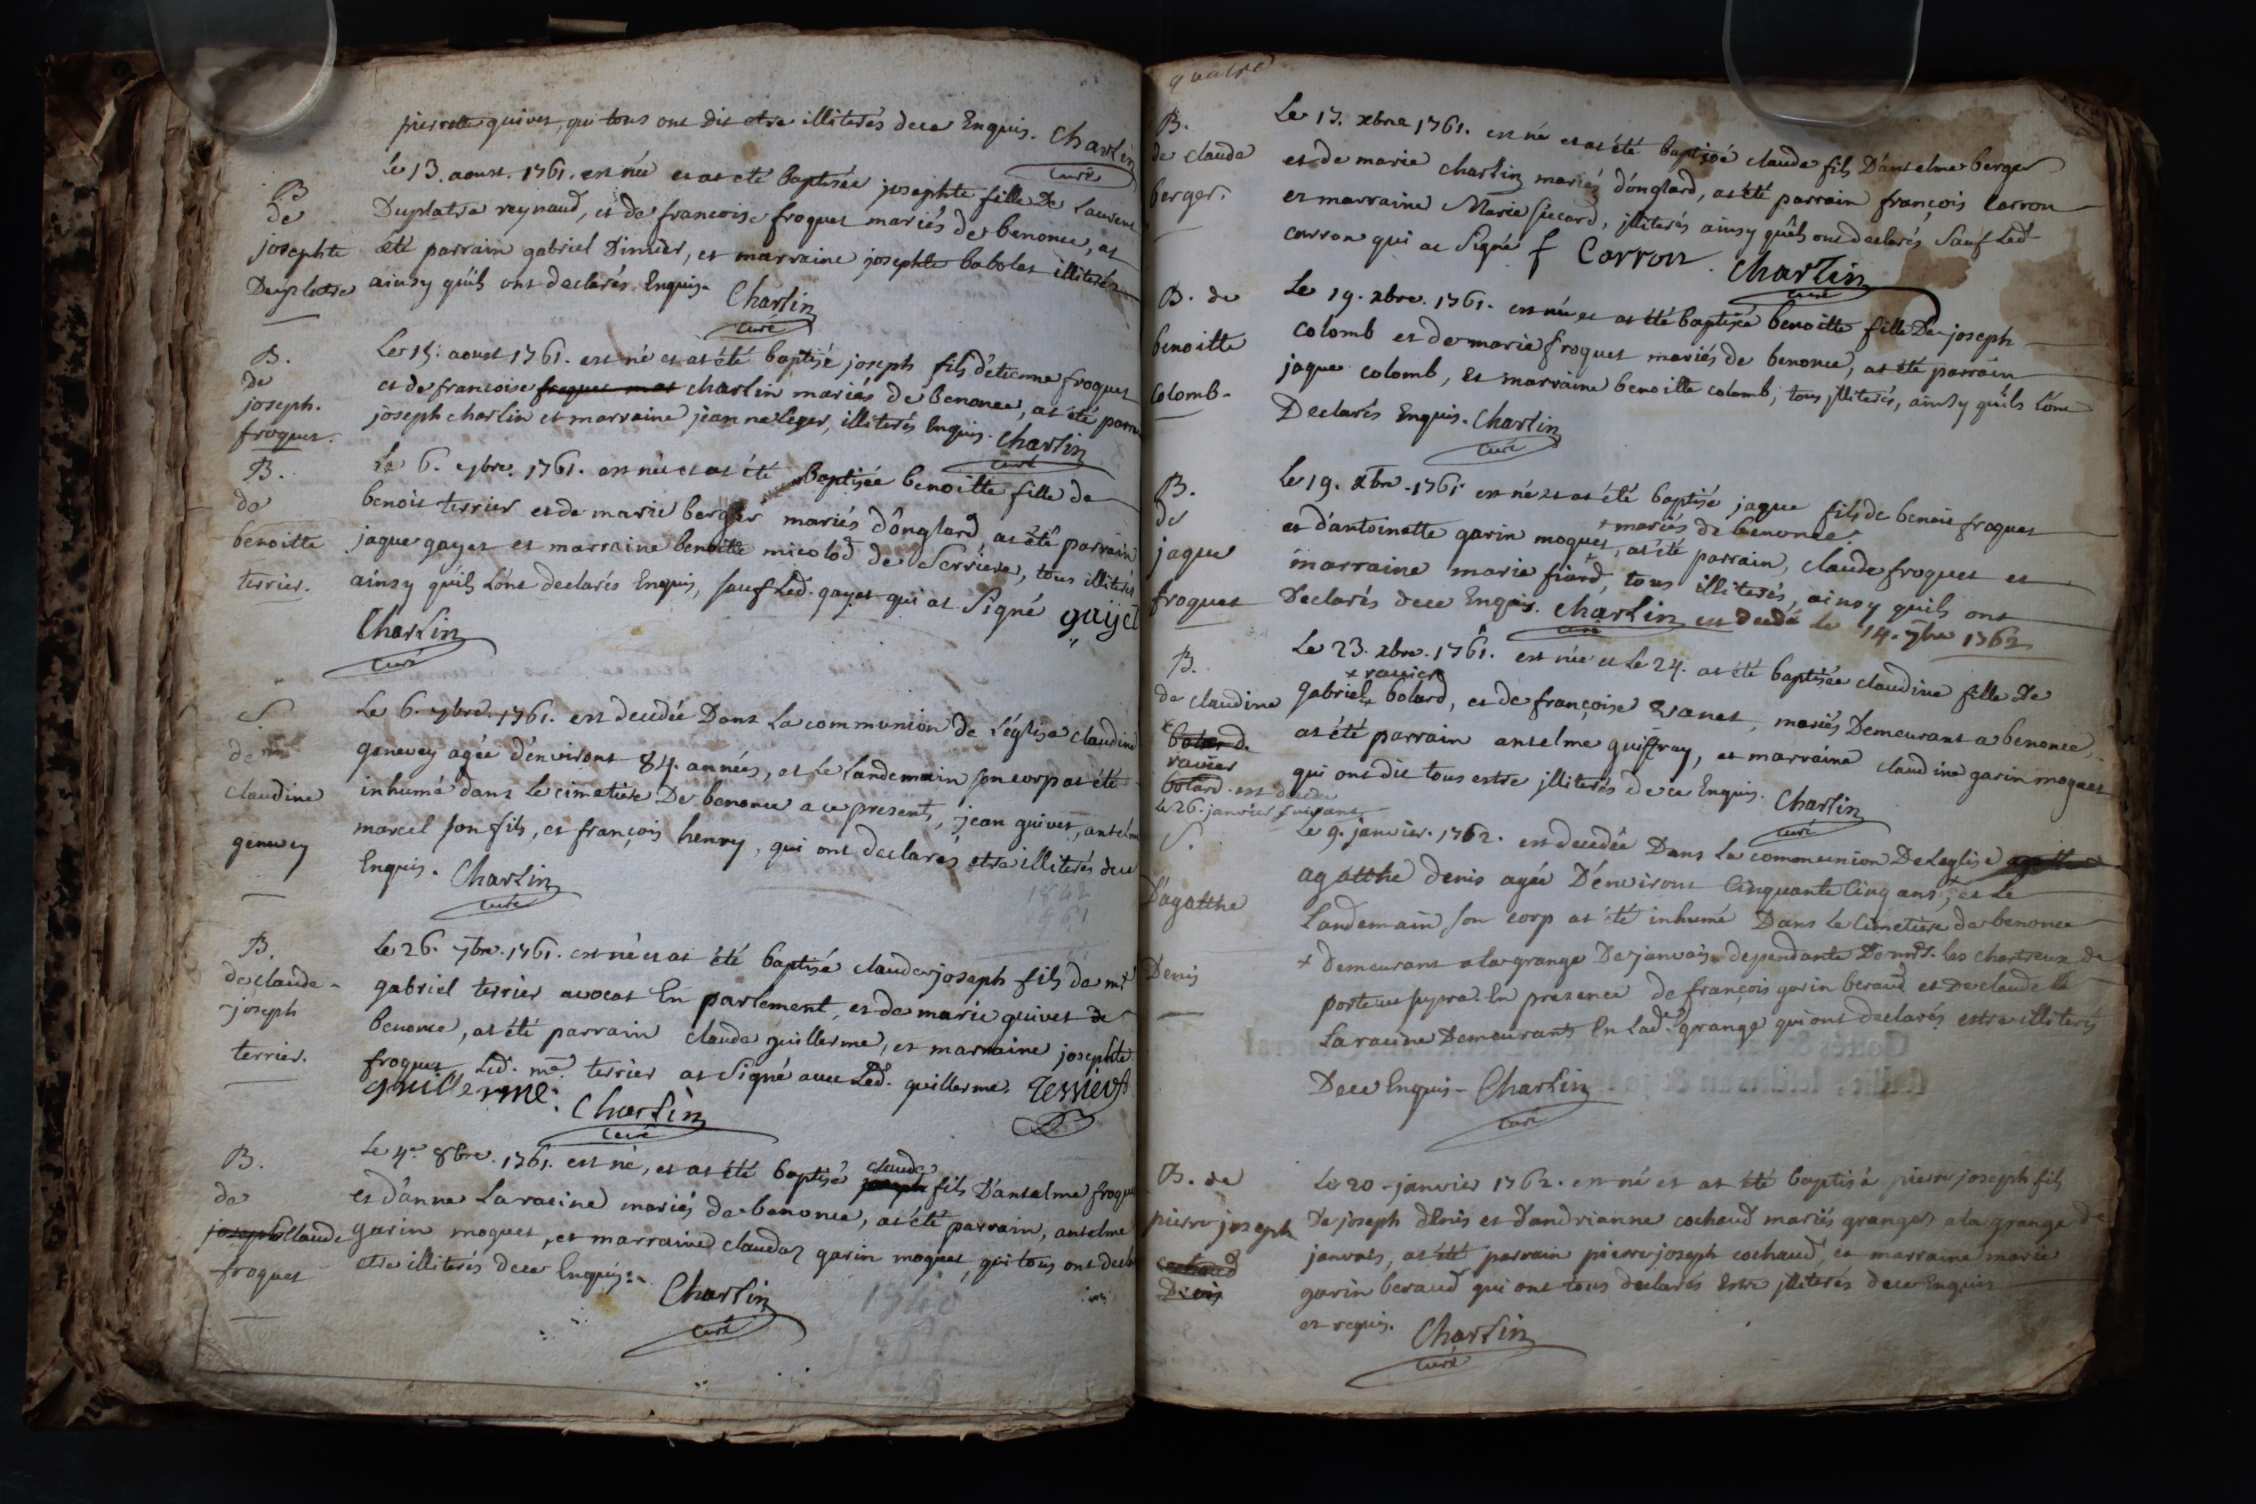 pierrette quivet, qui tous ont dit etre illiterés dece Enquis. Charlin
curé
B
de
josephte
Duplatre
Le 13. aoust. 1761. est née et at eté baptisée josephte fille De Laurent
Duplatre reynaud, et de francoise froquet mariés de benonce, at
été parrain gabriel Dimier, et marraine josephte babolat illiterés
ainsy qu'ils ont declarés Enquis. Charlin
curé
B.
de
joseph.
froquet.
Le 15. aoust 1761. est né et at été baptisé joseph fils d'etienne froquet
et de francoise froquet mar charlin mariés de benonce, at été parra
joseph charlin et marraine jeanne leger, illiterés Enquis. Charlin
curé
B.
de
benoitte
terrier.
Le 6. 7bre. 1761. est née et at été baptisée benoitte fille de
benoit terrier et de marie berger mariés d'onglard, at été parrain
jaque gayet et marraine benoitte micolod de Serriere, tous illiterés
ainsy qu'ils l'ont declarés Enquis, sauf led. gayet qui at Signé gayet
Charlin
curé
S
de
claudine
genevey
Le 6. 7bre. 1761. est decedée Dans La communion de L'église claudine
genevey agée d'environt 84. années, et Le landemain son corp at été
inhumé dans le cimetiere De benonce a ce presents, jean quivet, antelme
marcel son fils, et françois henry, qui ont declarés etre illiterés dece
Enquis. Charlin
curé
B.
de claude-
-joseph
terrier.
Le 26. 7bre. 1761. est né et at été baptisé claude joseph fils de mr
gabriel terrier avocat En parlement, et de marie quivet de
benonce, at été parrain claude guillerme, et marraine josephte
froquet Led. mre. terrier at Signé avec Led. guillerme. Terrier
guillerme. Charlin
curé
B.
de
joseph claude
froquet
Le 4e 8bre. 1761. est né, et at été baptisé joseph claude fils D'antelme froquet
et d'anne Laracine mariés de benonce, at été parrain, antelme
garin moquet, et marraine claudaz garin moquet, qui tous ont decla
etre illiterés dece Enquis. Charlin
curé
quatre
B.
de claude
berger.
Le 17. xbre 1761. est né et at été baptisé claude fils D'antelme berger
et de marie charlin mariés d'onglard, at été parrain françois carron
et marraine Marie siccard, jlliterés ainsy qu'ils ont declarés Sauf Led.
carron qui at Signé f Carron. Charlin
curé
B. de
benoitte
Colomb.
Le 19. xbre. 1761. est née et at été baptisée benoitte fille De joseph
colomb et de marie froquet mariés de benonce, at été parrain
jaque colomb, Et marraine benoitte colomb, tous jlliterés, ainsy qu'ils l'ont
Declarés Enquis. Charlin
curé
B.
de
jaque
froquet
Le 19. xbre. 1761. est né et at été baptisé jaque fils de benoit froquet
+ mariés de benonce.
et d'antoinette garin moquet, at été parrain, claude froquet et
marraine marie fiard tous illiterés, ainsy qu'ils ont
Declarés dece Enquis. Charlin est decedé le 14. 7bre 1762
curé
B.
de claudine
bolard.
ravier
bolard. est decedée
le 26. janvier suivant
Le 23. xbre. 1761. est née et Le 24. at été baptisée claudine fille De
+ ravier
gabriel + bolard, et de françoise vanet, mariés Demeurant a benonce,
at été parrain antelme guiffray, et marraine claudine garin moquet
qui ont dit tous estre jlliterés dece Enquis. Charlin
curé
S.
D'agatthe
Denis
Le 9. janvier. 1762. est decedée Dans La communion De Leglise agatthe
agatthe denis agée D'environt Cinquante Cinq ans, + et Le
Landemain son corp at été inhumé Dans le Cimetiere de benonce
+ demeurant a la grange De janvais dependante De mrs. les chartreux de
porte ut supra. En presence de françois garin beraud et De claude
Laracine Demeurants En Lad. grange qui ont declarés estre illiterés
Dece Enquis. Charlin
curé
B. de
pierre joseph
cochaud
Denis
Le 20. janvier 1762. est né et at été baptisé pierre joseph fils
De joseph denis et d'andrianne cochaud mariés grangers a la grange de
janvais, at été parrain pierre joseph cochaud, et marraine marie
garin beraud qui ont tous declarés Estre jlliterés dece Enquis
et requis. Charlin
curé